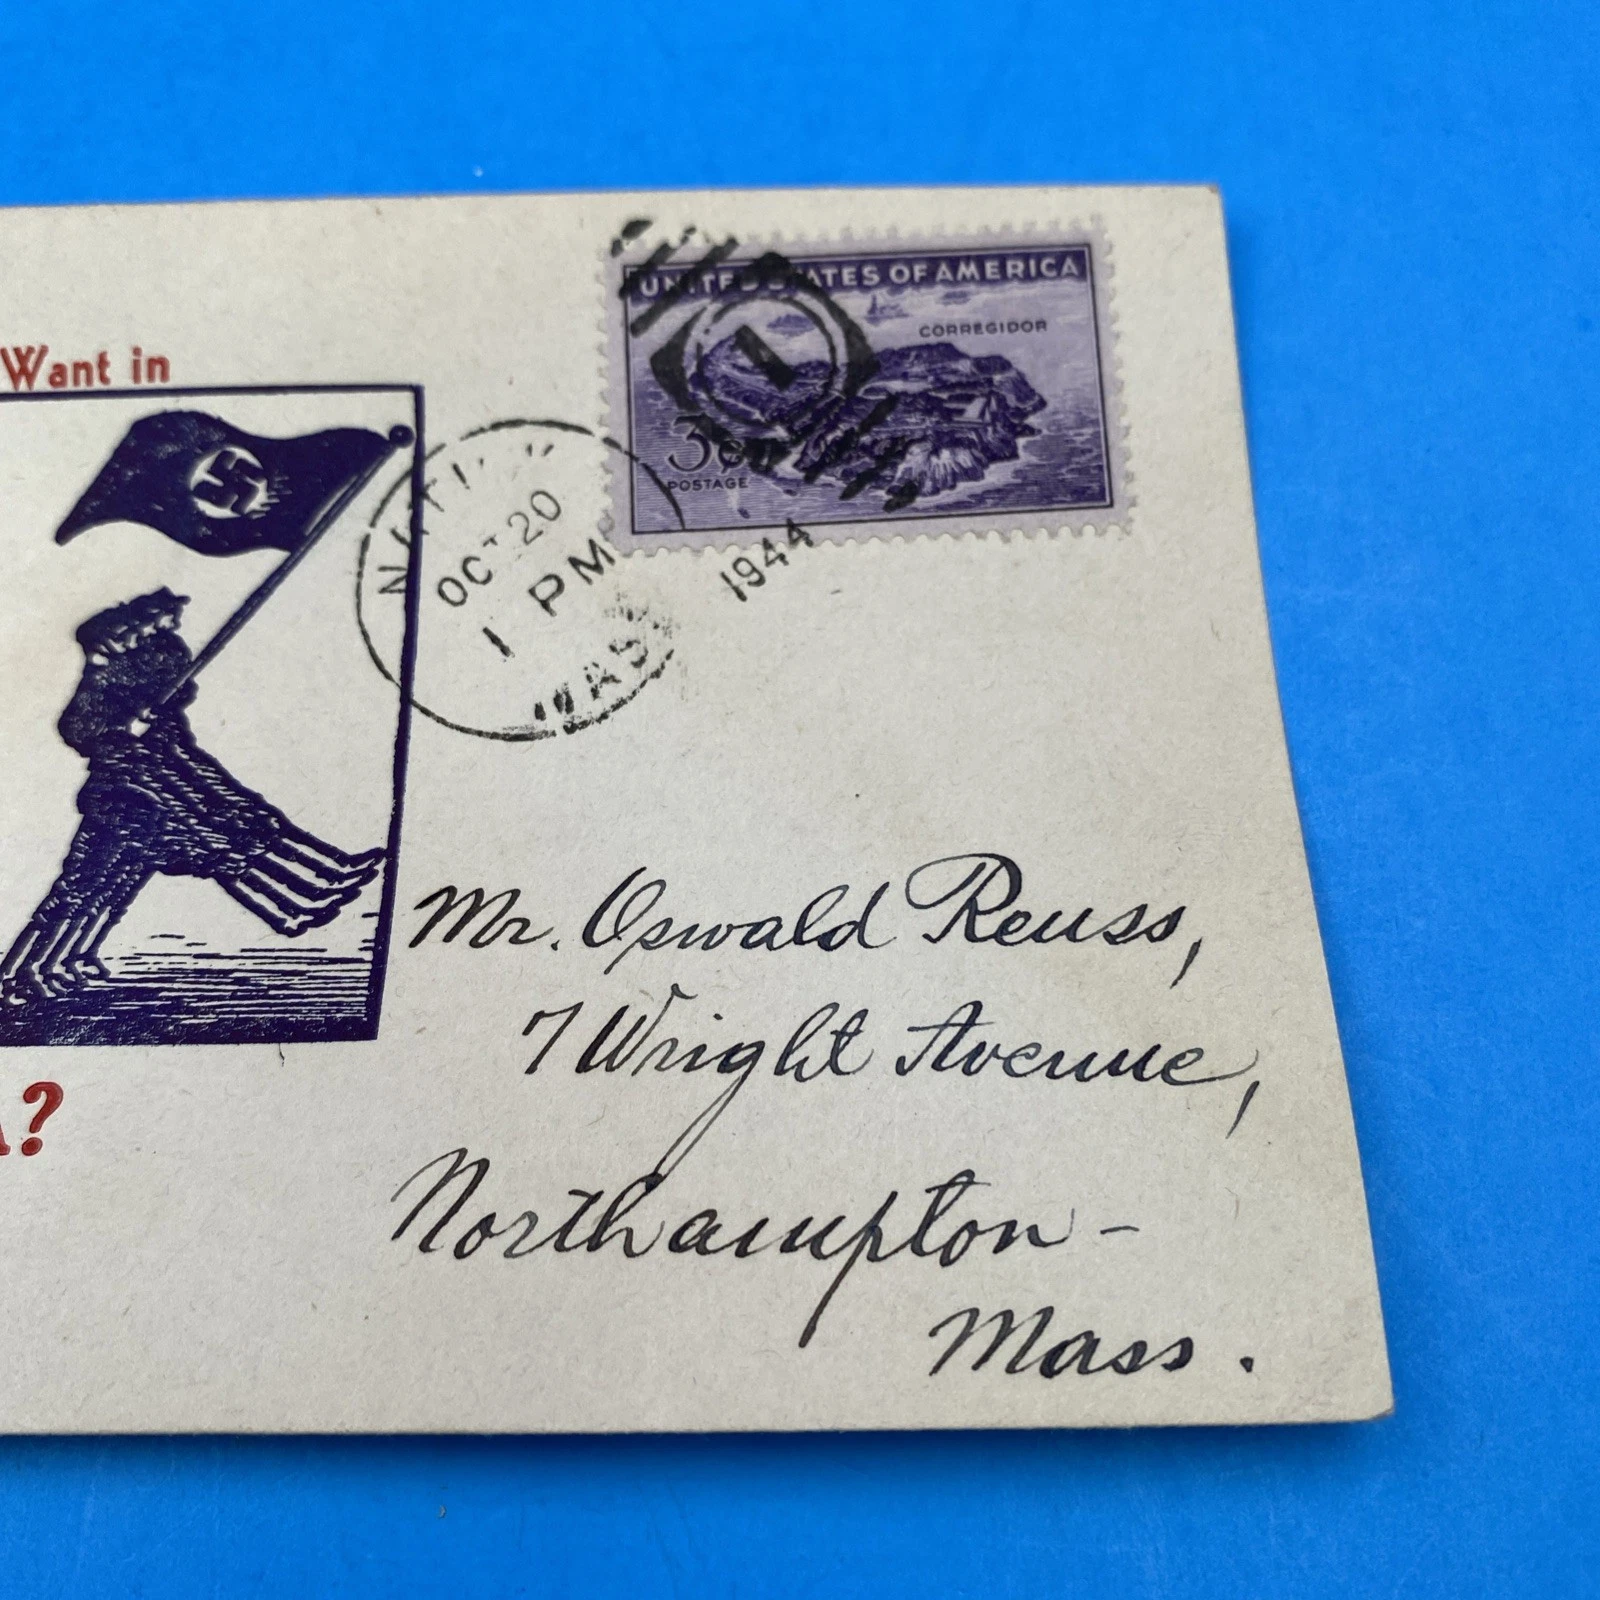 Want in
?
UNITED STATES OF AMERICA
CORREGIDOR
3¢
POSTAGE
1
OCT 20
1 PM
1944
WASH
Mr. Oswald Reuss,
7 Wright Avenue,
Northampton -
Mass.